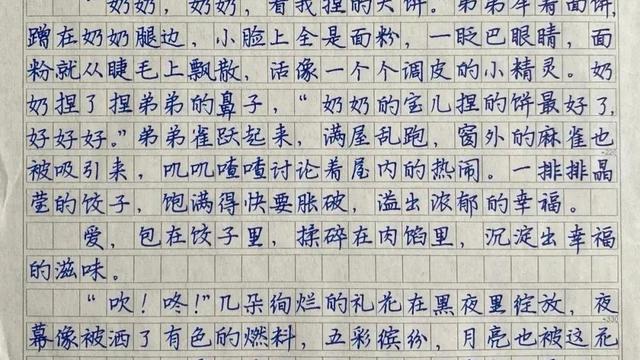 “奶奶，奶奶，看我捏的大饼。”弟弟拿着面饼，
蹭在奶奶腿边，小脸上全是面粉，一眨巴眼睛，面
粉就从睫毛上飘散，活像一个个调皮的小精灵。奶
奶捏了捏弟弟的鼻子，“奶奶的宝儿捏的饼最好了，
好好好。”弟弟雀跃起来，满屋乱跑，窗外的麻雀也
被吸引来，叽叽喳喳讨论着屋内的热闹。一排排晶
莹的饺子，饱满得快要胀破，溢出浓郁的幸福。
爱，包在饺子里，揉碎在肉馅里，沉淀出幸福
的滋味。
“吹！咚！”几朵绚烂的礼花在黑夜里绽放，夜
幕像被洒了有色的燃料，五彩缤纷，月亮也被这花